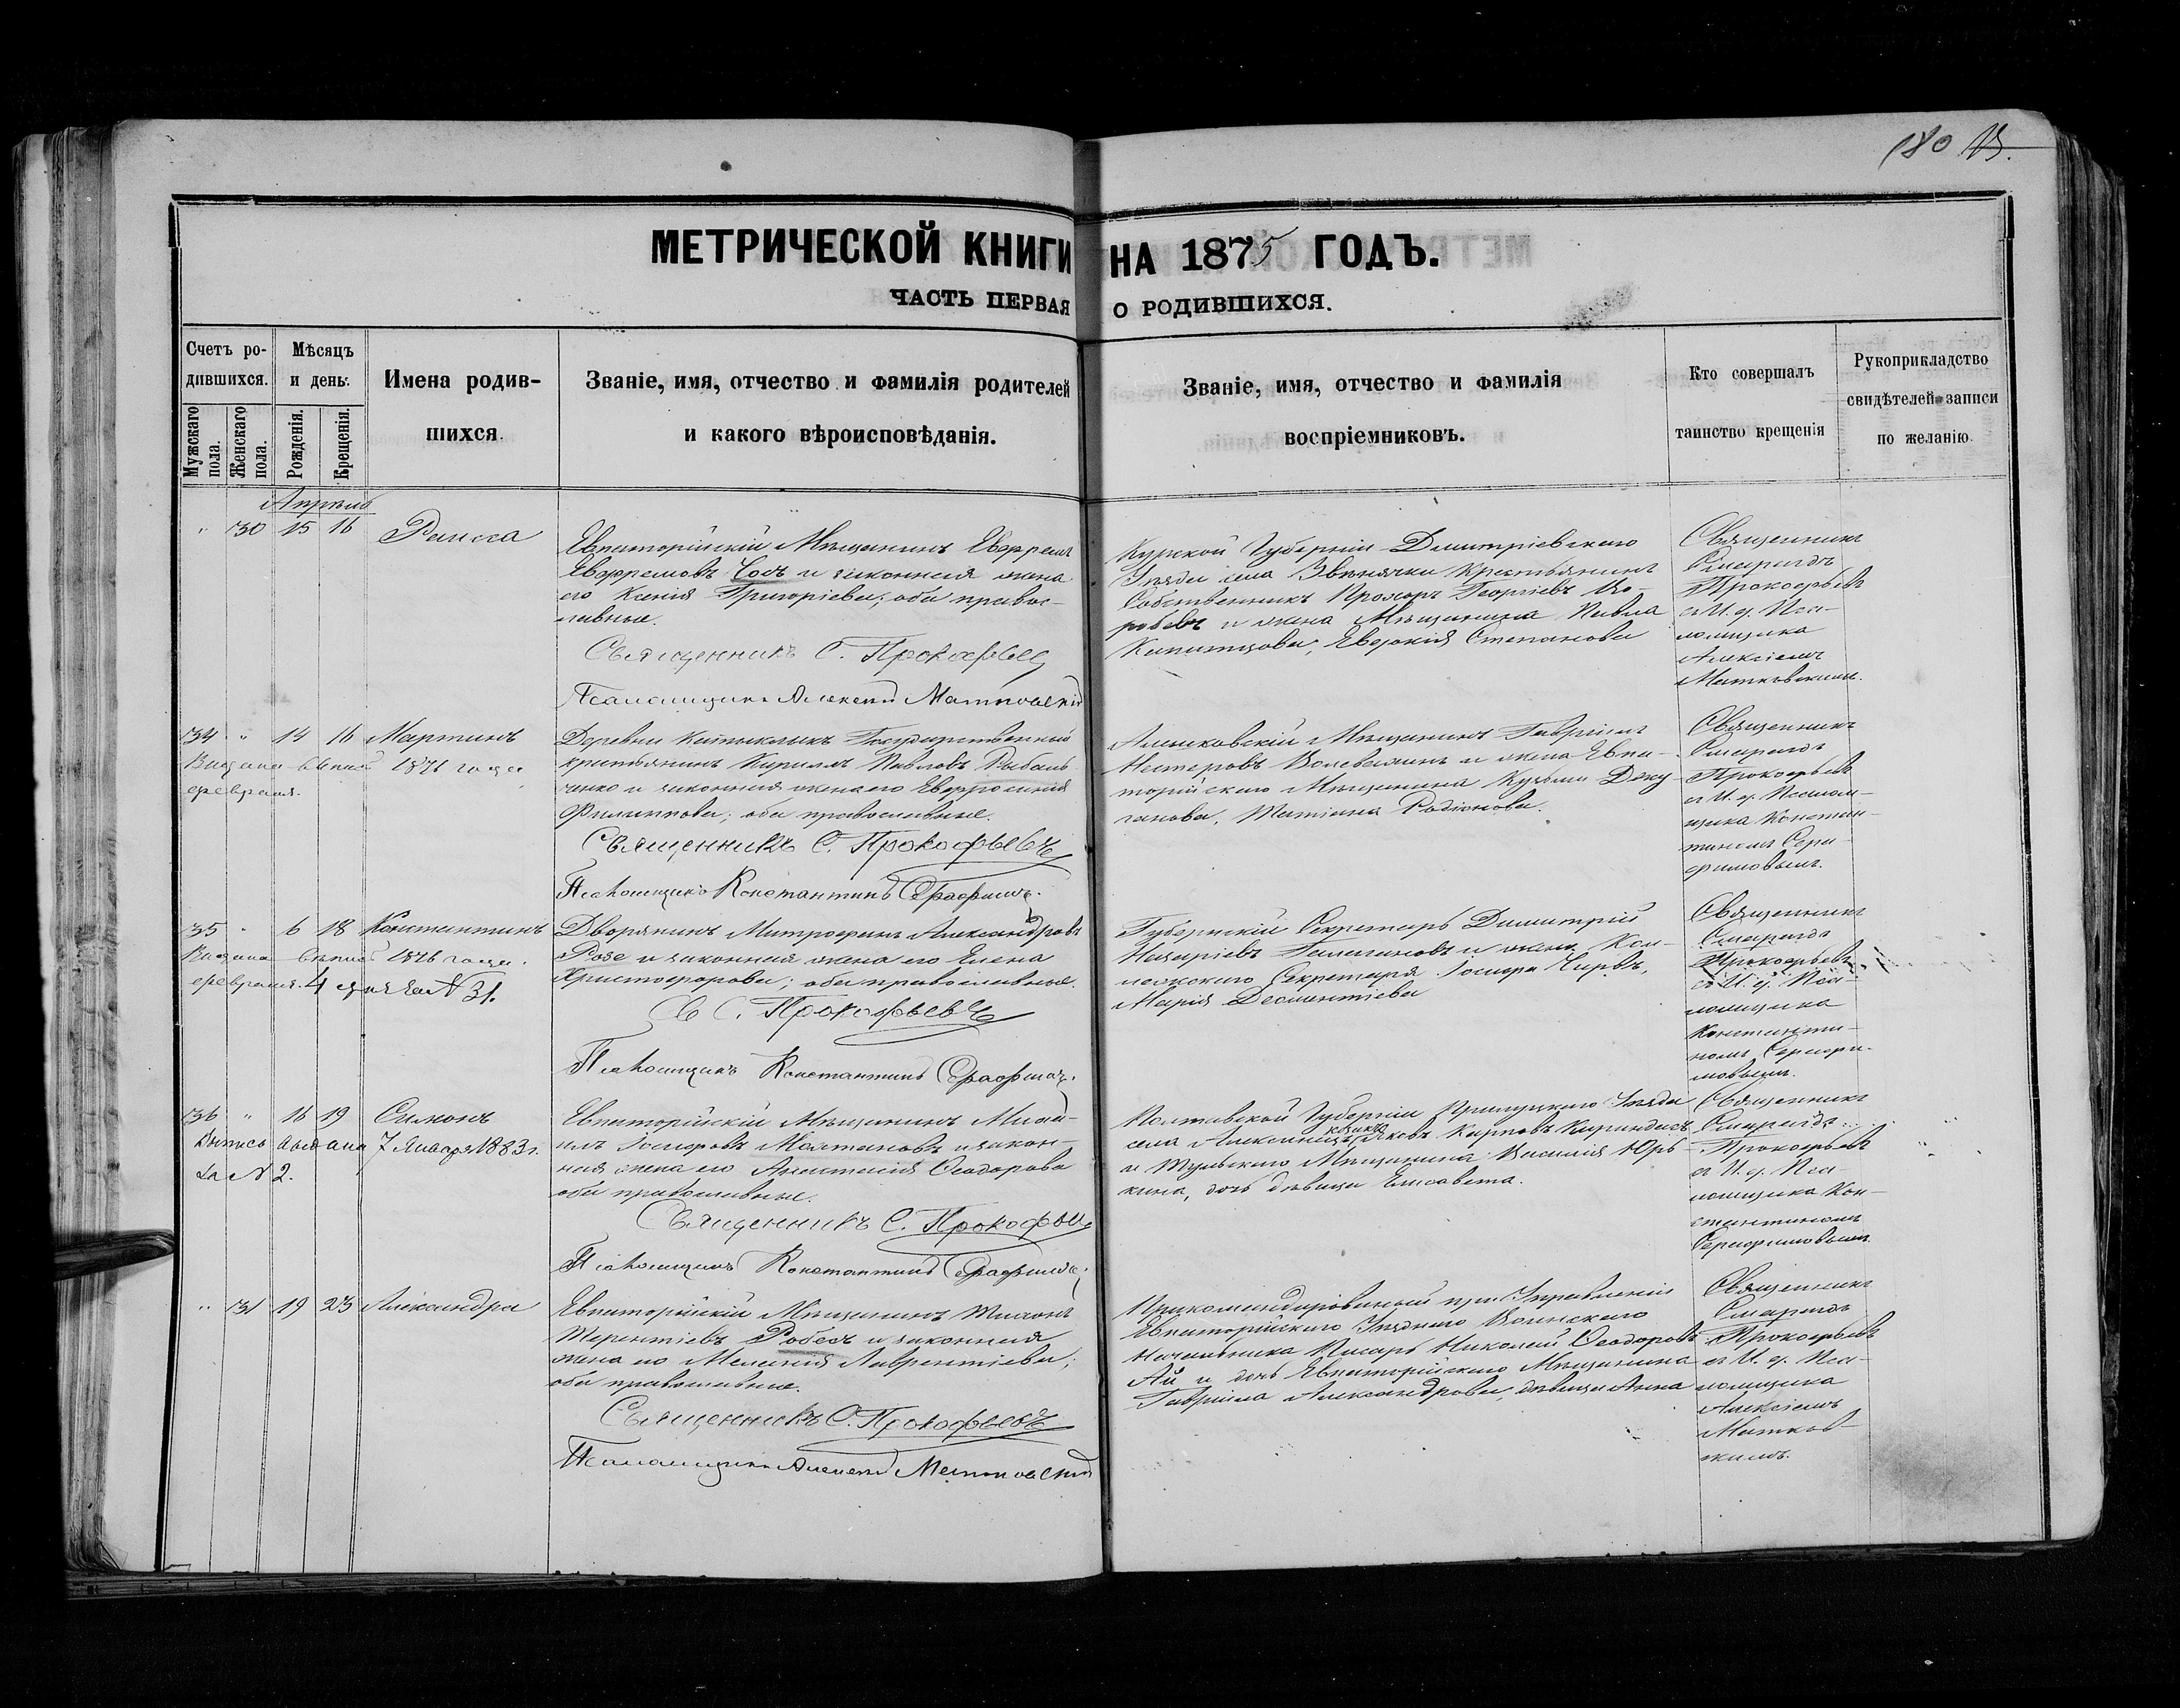 180
МЕТРИЧЕСКОЙ КНИГИ НА 1875 ГОДЪ.
ЧАСТЬ ПЕРВАЯ О РОДИВШИХСЯ.
Счетъ родившихся.
Мужскаго пола.
Женскаго пола.
Мѣсяцъ и день.
Рожденія.
Крещенія.
Имена родившихся.
Званіе, имя, отчество и фамилія родителей
и какого вѣроисповѣданія.
Званіе, имя, отчество и фамилія
воспріемниковъ.
Кто совершалъ
таинство крещенія
Рукоприкладство
свидѣтелей записи
по желанію.
Апрѣль
" 30 15 16 Раиса
Евпаторійскій Мѣщанинъ Ефремъ
Ефремовъ и законная жена
его Ксенія Григоріева; оба правос-
лавные.
Священникъ С. Прокофьев
Псаломщикъ Алексей Матковскій
Курской Губерніи Димитріевскаго
Уѣзда села Звѣнячки Крестьянинъ
Собственникъ Прохоръ Георгіевъ
и жена Мѣщанина Павла
Капитцова, Евдокія Степанова
Священникъ
Смарагдъ
Прокофьевъ
съ И. д. Пса-
ломщика
Алексіемъ
Матковскимъ.
34 " 14 16 Мартинъ
Выдана выпис 1876 года
февраля.
Деревни Государственный
крестьянинъ Кириллъ Павловъ Рыбаль
ченко и законная жена его Евфросинія
Филиппова; оба православные.
Священникъ С. Прокофьевъ
Псаломщикъ Константинъ Серафимовъ.
Алешковскій Мѣщанинъ Гавріилъ
Нестеровъ и жена Евпа-
торійскаго Мѣщанина Кузьмы Деку-
ганова, Татіана Родіонова.
Священникъ
Смарагдъ
Прокофьевъ
съ И. д. Псалом-
щика Констан-
тиномъ Сера-
фимовымъ.
35 " 6 18 Константинъ
Выдана выпис 1876 года.
февраля. 4 дня за N 31.
Дворянинъ Митрофанъ Александровъ
Розе и законная жена его Елена
Христофорова; оба православные.
Св С. Прокофьевъ
Псаломщикъ Константинъ Серафимовъ.
Губернскій Секретарь Димитрій
Назаріевъ и жена Кол-
лежскаго Секретаря Іосифа Чирва,
Марія Дементіева
Священникъ
Смарагдъ
Прокофьевъ
съ И. д. Пса-
ломщика
Константи-
номъ Серафи-
мовымъ.
36 " 16 19 Симонъ
выпись выдана 7 Января 1883 г.
за N 2.
Евпаторійскій Мѣщанинъ Миха-
илъ Іосифовъ и закон-
ная жена его Анастасія Ѳеодорова
оба православные.
Священникъ С. Прокофьев
Псаломщикъ Константинъ Серафимовъ
Полтавской Губерніи Прилуцкаго Уѣзда
села козакъ Яковъ Карповъ
и Тульскаго Мѣщанина Василія Юрь-
кина, дочь дѣвица Елисавета.
Священникъ
Смарагдъ
Прокофьевъ
съ И. д. Пса-
ломщика Кон-
стантиномъ
Серафимовымъ.
" 31 19 23 Александра
Евпаторійскій Мѣщанинъ Тихонъ
Терентіевъ и законная
жена его Меланія Лаврентіева;
оба православные.
Священникъ С. Прокофьевъ
Псаломщикъ Алексей Матковскій
Прикомандированный при Управленіи
Евпаторійскаго Уѣзднаго Воинскаго
Начальника Писарь Николай Ѳеодоровъ
Ай и дочь Евпаторійскаго Мѣщанина
Гавріила Александрова, дѣвица Анна
Священникъ
Смарагдъ
Прокофьевъ
съ И. д. Пса-
ломщика
Алексіемъ
Матков-
скимъ.